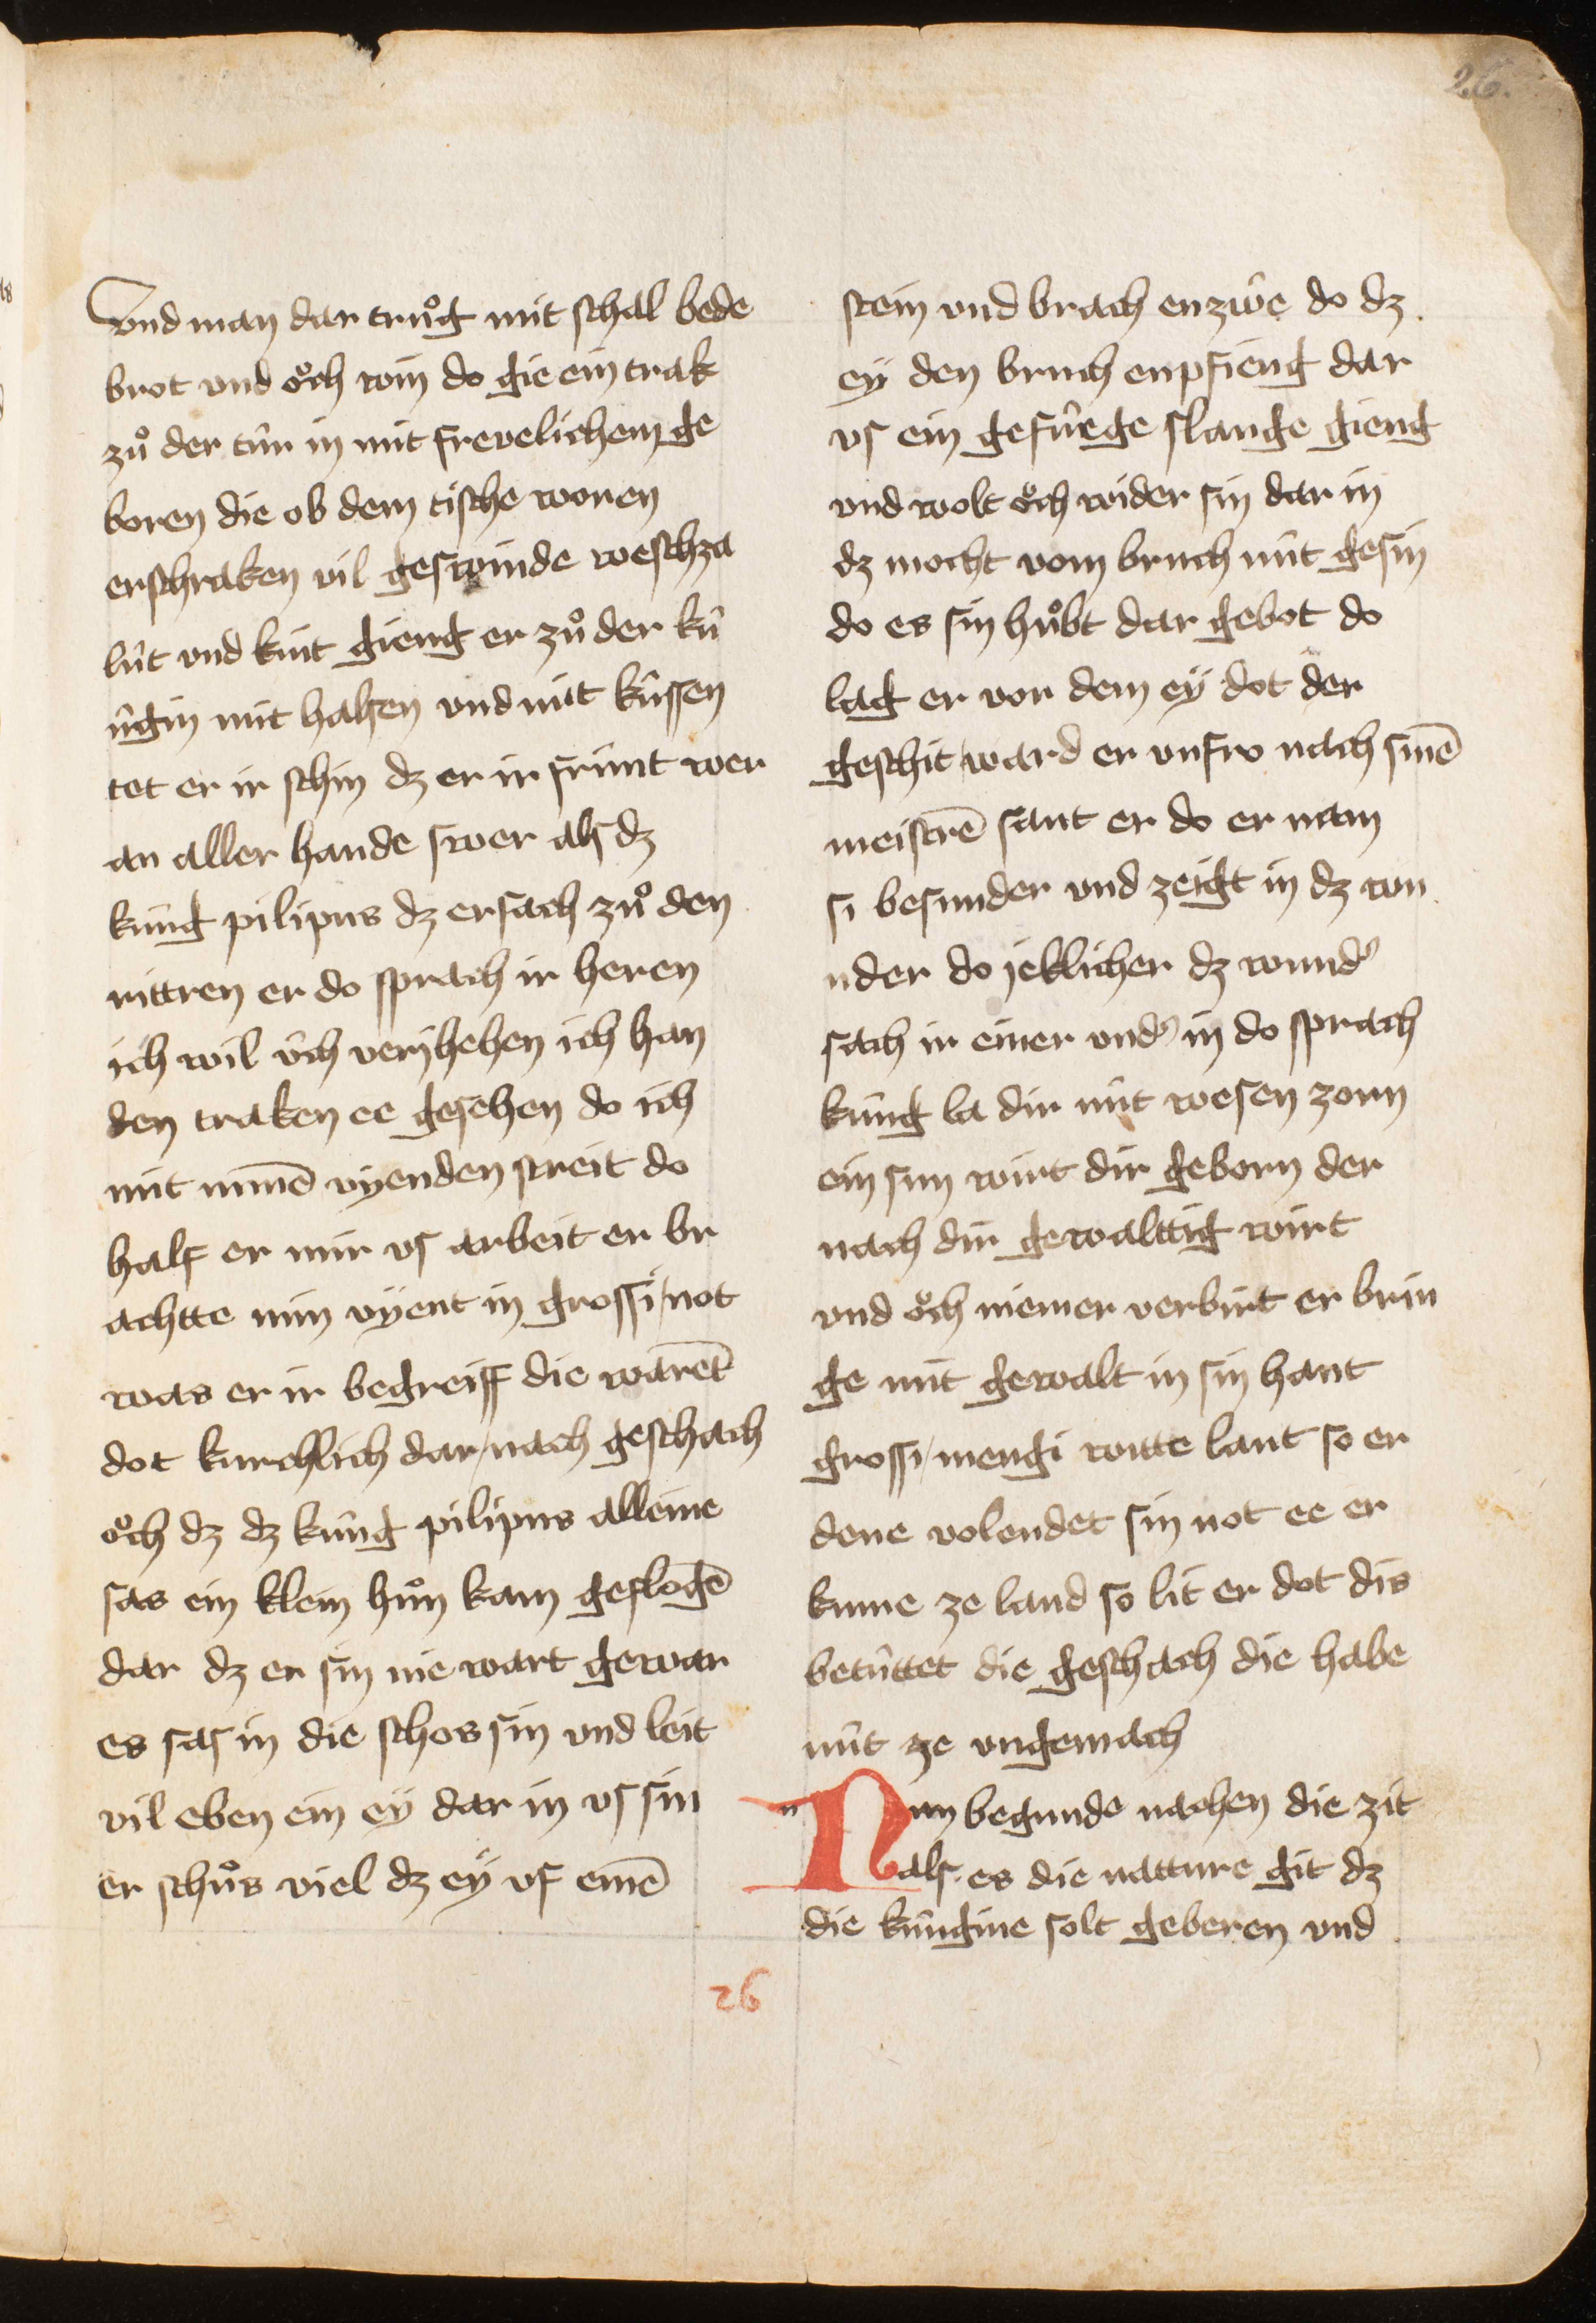 26.
vnd man dar truͦg mit schal bede
brot vnd oͤch win do gie ein trak
zuͦ der tûr in mit frevelichem ge
boren die ob dem tische woren
erschraken vil geswinde weschza
lût vnd kint gieng er zuͦ der kû
ngin mit halsen vnd mit kûssen
tet er ir schin dz er ir frûnt wer
an aller hande swer als dz
kûng pilipus dz ersach zuͦ den
rittren er do sprach ir heren
ich wil ûch veriehen ich han
den traken ee gesehen do ich
mit minē vyenden streit do
half er mir vs arbeit er br
achtte min vÿent in grossi / not
was er ir begreiff die warēt
dot kurchlich dar / nach geschach
oͤch dz dz kûng pilipus alleine
sas ein klein huͦn kam geflogē
dar dz er sin nie wart gewar
es sas in die schos sin vnd leit
vil eben ein eÿ dar in vs sin
er schuͦs viel dz eÿ vf einē
stein vnd brach enzwe do dz
eÿ den bruch enpfieng dar
vs ein gefûege slange gieng
vnd wolt oͤch wider sin dar in
dz mocht vom bruch nût gesin
do es sin huͦbt dar gebot do
lag er vor dem eÿ dot der
geschit / ward er vnfro nach sinē
meistrē sant er do er nam
si besunder vnd zeigt in dz wu
nder do jeklicher dz wundˀ
sach ir einer vndˀ in do sprach
kûng la dir nût wesen zorn
ein sun wirt dir geborn der
nach dir gewalttig wirt
vnd oͤch niemer verbirt er brin
ge mit gewalt in sin hant
grossi / mengi witte lant so er
dene volendet sin not ee er
kume ze land so lit er dot dis
betûttet die geschach die habe
nût ze vngemach
n
Nun begunde nachen die zit
als es die natture git dz
die kûngine solt geberen vnd
26